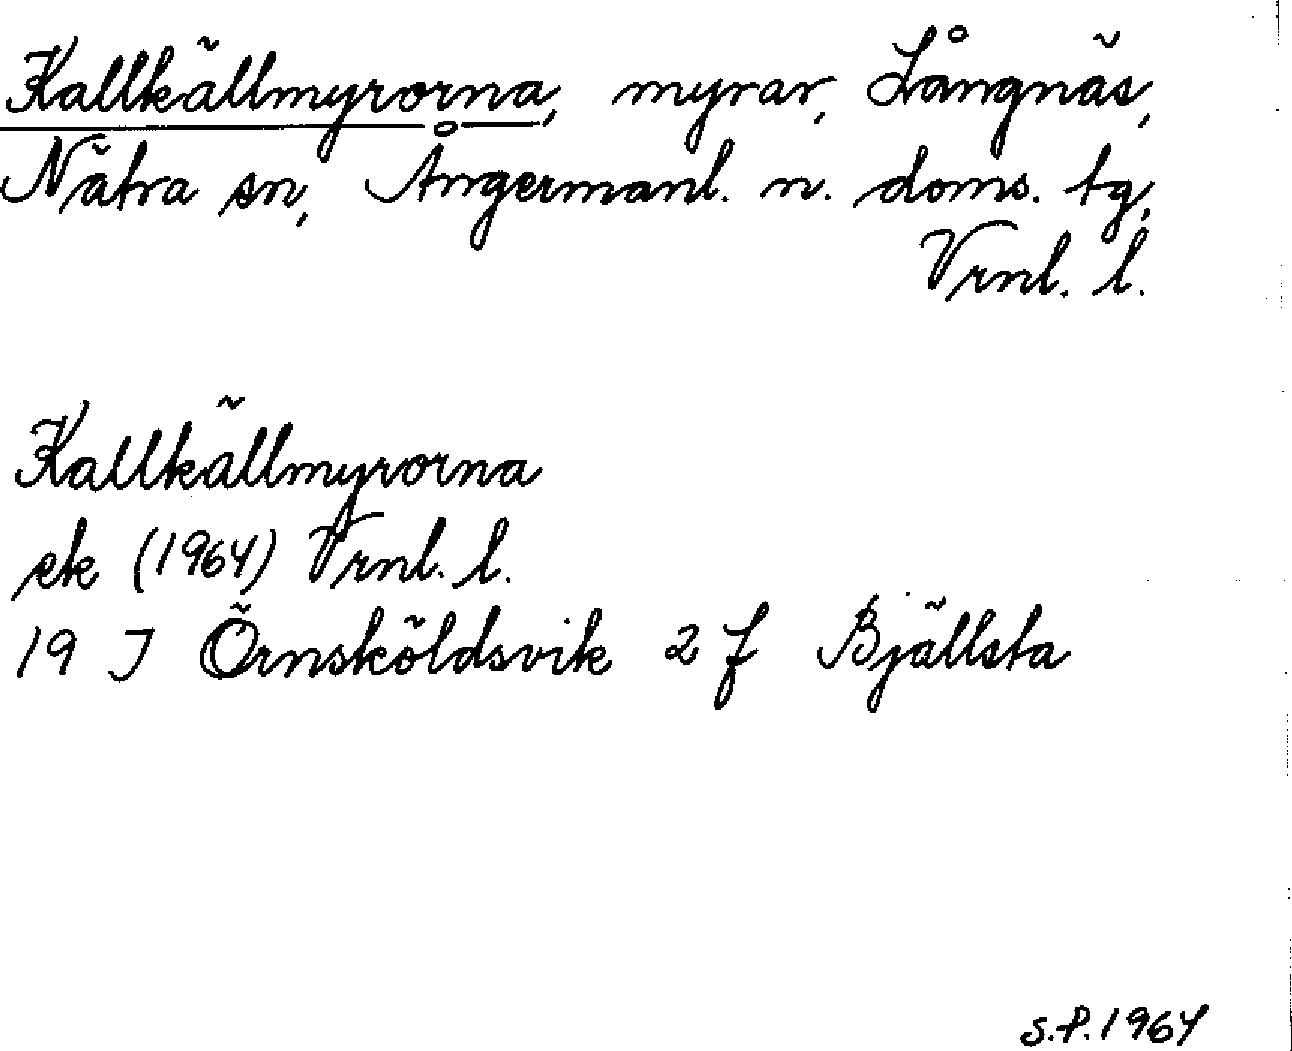 Kallkällmyrorna, myrar, Långnäs,
Nätra sn, Ångermanl. n. doms. tg,
Vrnl. l.
Kallkällmyrorna
ek (1964) Vrnl. l.
19 J Örnsköldsvik 2 f Bjällsta
S.P. 1964